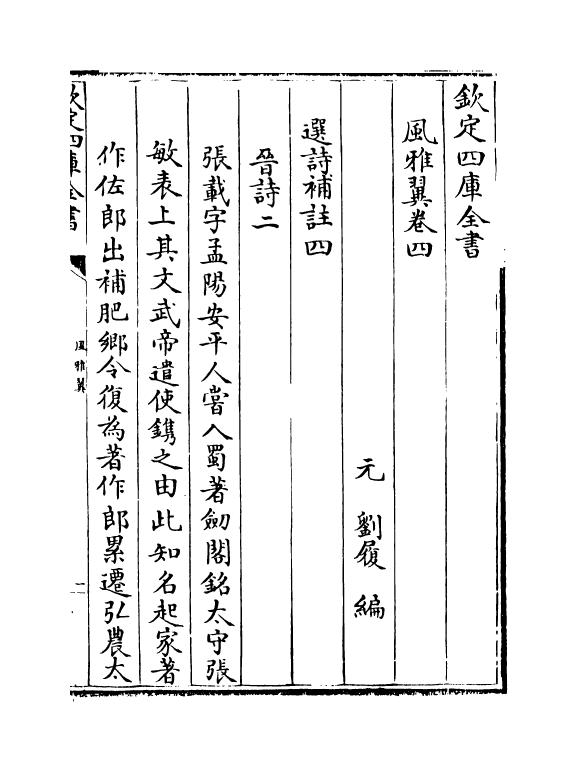 欽定四庫全書
風雅翼卷四
元 劉履 編
選詩補註四
晉詩二
張載字孟陽安平人嘗入蜀著劒閣銘太守張
敏表上其文武帝遣使鐫之由此知名起家著
作佐郎出補肥鄉令復為著作郎累遷弘農太
欽定四庫全書
風雅翼